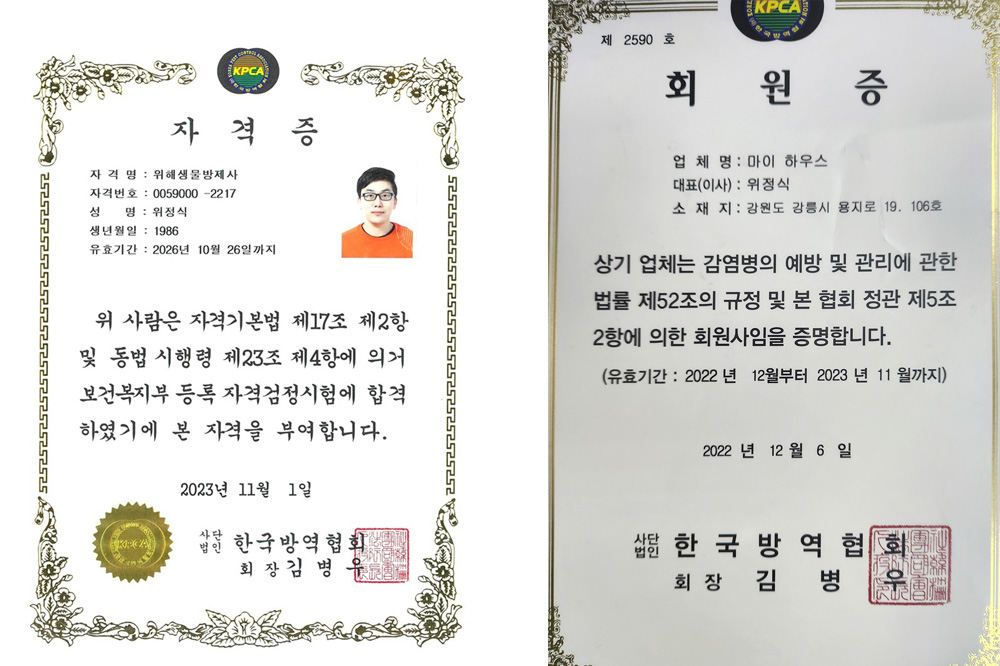 KPCA
자 격 증
자 격 명 : 위해생물방제사
자격번호 : 0059000 -2217
성 명 : 위정식
생년월일 : 1986
유효기간 : 2026년 10월 26일까지
위 사람은 자격기본법 제17조 제2항
및 동법 시행령 제23조 제4항에 의거
보건복지부 등록 자격검정시험에 합격
하였기에 본 자격을 부여합니다.
2023년 11월 1일
KPCA
사단
법인 한국방역협회
회 장 김 병 우
KPCA
제 2590 호
회 원 증
업 체 명 : 마이 하우스
대표(이사) : 위정식
소 재 지 : 강원도 강릉시 용지로 19. 106호
상기 업체는 감염병의 예방 및 관리에 관한
법률 제52조의 규정 및 본 협회 정관 제5조
2항에 의한 회원사임을 증명합니다.
(유효기간 : 2022 년 12월부터 2023 년 11 월까지)
2022 년 12 월 6 일
사단
법인 한국방역협회
회 장 김 병 우